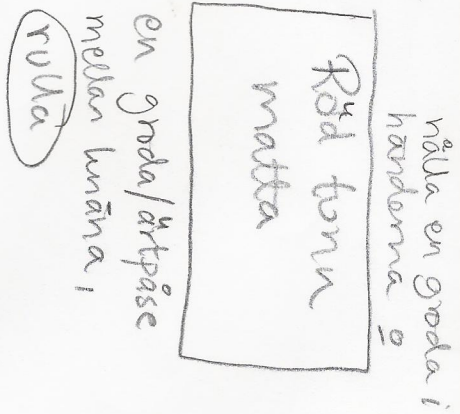 hålla en groda i
händerna o
Röd tunn
matta
en groda/ärtpåse
mellan knäna,
rulla